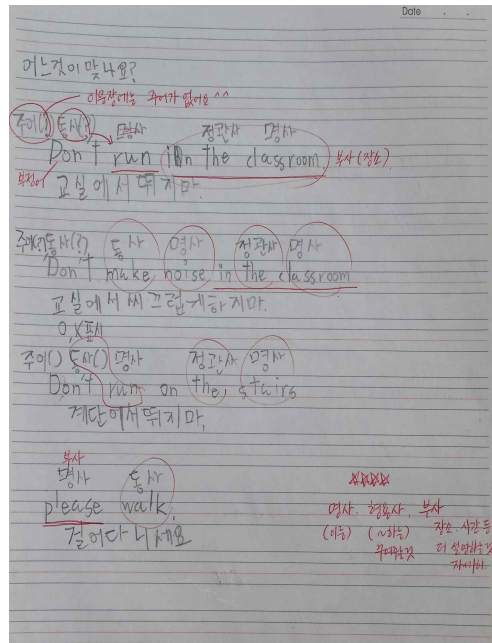 Date
어느것이 맞나요?
이문장에는 주어가 없어요^^
주어(?) 동사(?) 명사 정관사 명사
Don't run in the classroom 부사(장소)
부정어
교실에서 뛰지마.
주어(?)동사(?) 동사 명사 정관사 명사
Don't make noise in the classroom
교실에서 씨끄럽게하지마.
O,X표시
주어() 동사() 명사 정관사 명사
Don't run on the stairs
계단에서 뛰지마,
부사
명사 동사
please walk.
걸어다니세요
☆☆☆☆
명사. 형용사. 부사
(이름) (~하는) 장소. 시간 등
더 설명하는것
자세히.